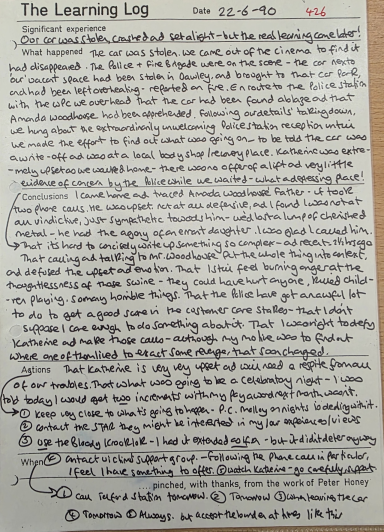 The Learning Log Date 22-6-90 426
Significant experience
Our car was stolen, crashed and set alight - but the real learning came later!
What happened The car was stolen. We came out of the cinema to find it
had disappeared. The Police + Fire Brigade were on the scene - the car next
to our vacant space had been stolen in Dawley, and brought to that car park,
and had been left overheating - reported on fire. En route to the Police Station
with the WPC we overheard that the car had been found ablaze and that
Amanda Woodhouse had been apprehended. Following our details' taking down,
we hung about the extraordinarily unwelcoming Police station reception until
we made the effort to find out what was going on - to be told the car was
a write-off and was at a local body shop/recovery place. Katherine was extre-
mely upset so we walked home - there was no offer of a lift and very little
evidence of concern by the Police while we waited - what a depressing place!
Conclusions I came home and traced Amanda Woodhouse's Father - it took
two phone calls. He was upset not at all defensive, and I found I was not at
all vindictive, just sympathetic towards him - we'd lost a lump of cherished
metal - he had the agony of an errant daughter. I was glad I called him.
That it's hard to concisely write up something so complex - and recent. 1½ hrs ago
That calling and talking to Mr. Woodhouse put the whole thing into context,
and defused the upset and emotion. That I still feel burning anger at the
thoughtlessness of those swine - they could have hurt anyone, killed child-
ren playing. So many horrible things. That the Police have got an awful lot
to do to get a good score in the customer care stakes - that I don't
suppose I care enough to do something about it. That I was right to defy
Katherine and make those calls - although my motive was to find out
where one of them lived to exact some revenge, that soon changed.
Actions That Katherine is very very upset and will need a respite from all
of our troubles. That what was going to be a celebratory night - I was
told today I would get two increments with my pay award next month, went.
① Keep very close to what's going to happen - P.C. Molloy on nights is dealing with it.
② Contact the STAR they might be interested in my experiences/views
③ Use the Bloody Krooklok - I had it extended
When ④ Contact victims support group. - Following the phone call in particular,
I feel I have something to offer. ⑤ Watch Katherine - go carefully, support
....pinched, with thanks, from the work of Peter Honey
① Call Telford Station tomorrow. ② Tomorrow ③ When leaving the car
④ Tomorrow ⑤ Always. but accept the bounden at times like this